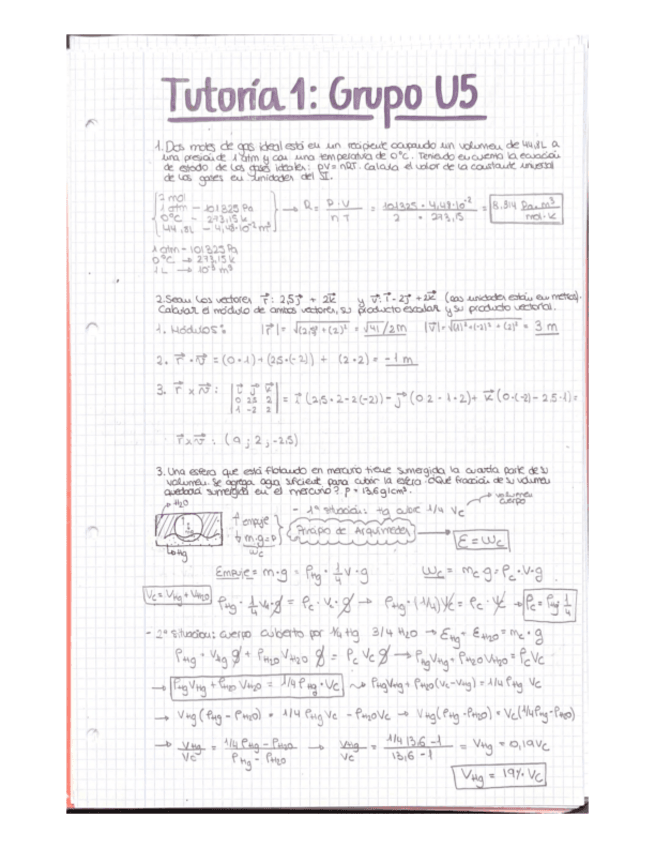 Tutoría 1: Grupo U5
1. Dos moles de gas ideal está en un recipiente ocupando un volumen de 44,8L a
una presión de 1 atm y con una temperatura de 0°C. Teniendo en cuenta la ecuación
de estado de los gases ideales: pV = nRT. Calcula el valor de la constante universal
de los gases en unidades del SI.
2 mol
1 atm - 101325 Pa
0°C - 273,15 K
44,8L - 4,48·10⁻² m³
→ R = P·V / n T = 101325 · 4,48·10⁻² / 2 · 273,15 = 8.314 Pa·m³ / mol·K
1 atm - 101325 Pa
0°C → 273,15 K
1 L → 10⁻³ m³
2. Sean los vectores r⃗: 2,5j⃗ + 2k⃗ y v⃗: i⃗ - 2j⃗ + 2k⃗ (las unidades están en metros).
Calcular el módulo de ambos vectores, su producto escalar y su producto vectorial.
1. Módulos: |r⃗| = √(2,5)² + (2)² = √41/2 m |v⃗| = √(1)² + (-2)² + (2)² = 3 m
2. r⃗ · v⃗ = (0·1) + (2,5·(-2)) + (2·2) = -1 m
3. r⃗ x v⃗ : | i⃗ j⃗ k⃗ | 0 2,5 2 | 1 -2 2 | = i⃗ (2,5·2 - 2(-2)) - j⃗ (0·2 - 1·2) + k⃗ (0·(-2) - 2,5·1) =
r⃗ x v⃗ : (9 ; 2 ; -2,5)
3. Una esfera que está flotando en mercurio tiene sumergida la cuarta parte de su
volumen. Se agrega agua suficiente para cubrir la esfera ¿Qué fracción de su volumen
quedará sumergida en el mercurio? ρ = 13,6 g/cm³.
→ H₂O
Hg
↑ empuje
↓ m·g = P
Wc
- 1ª situación: Hg cubre 1/4 Vc → volumen cuerpo
Principio de Arquímedes → E = Wc
Empuje = m·g = ρHg · 1/4 V · g Wc = mc g = ρc · V · g
Vc = VHg + VH₂O
ρHg · 1/4 Vc · g = ρc · Vc · g → ρHg · (1/4) Vc = ρc · Vc → ρc = ρHg 1/4
- 2ª situación: cuerpo cubierto por 1/4 Hg 3/4 H₂O → EHg + EH₂O = mc · g
ρHg · VHg g + ρH₂O VH₂O g = ρc Vc g → ρHg VHg + ρH₂O VH₂O = ρc Vc
→ ρHg VHg + ρH₂O VH₂O = 1/4 ρHg · Vc ⤳ ρHg VHg + ρH₂O (Vc - VHg) = 1/4 ρHg Vc
→ VHg (ρHg - ρH₂O) = 1/4 ρHg Vc - ρH₂O Vc → VHg (ρHg - ρH₂O) = Vc (1/4 ρHg - ρH₂O)
→ VHg / Vc = 1/4 ρHg - ρH₂O / ρHg - ρH₂O → VHg / Vc = 1/4 13,6 - 1 / 13,6 - 1 = VHg = 0,19 Vc
VHg = 19% Vc